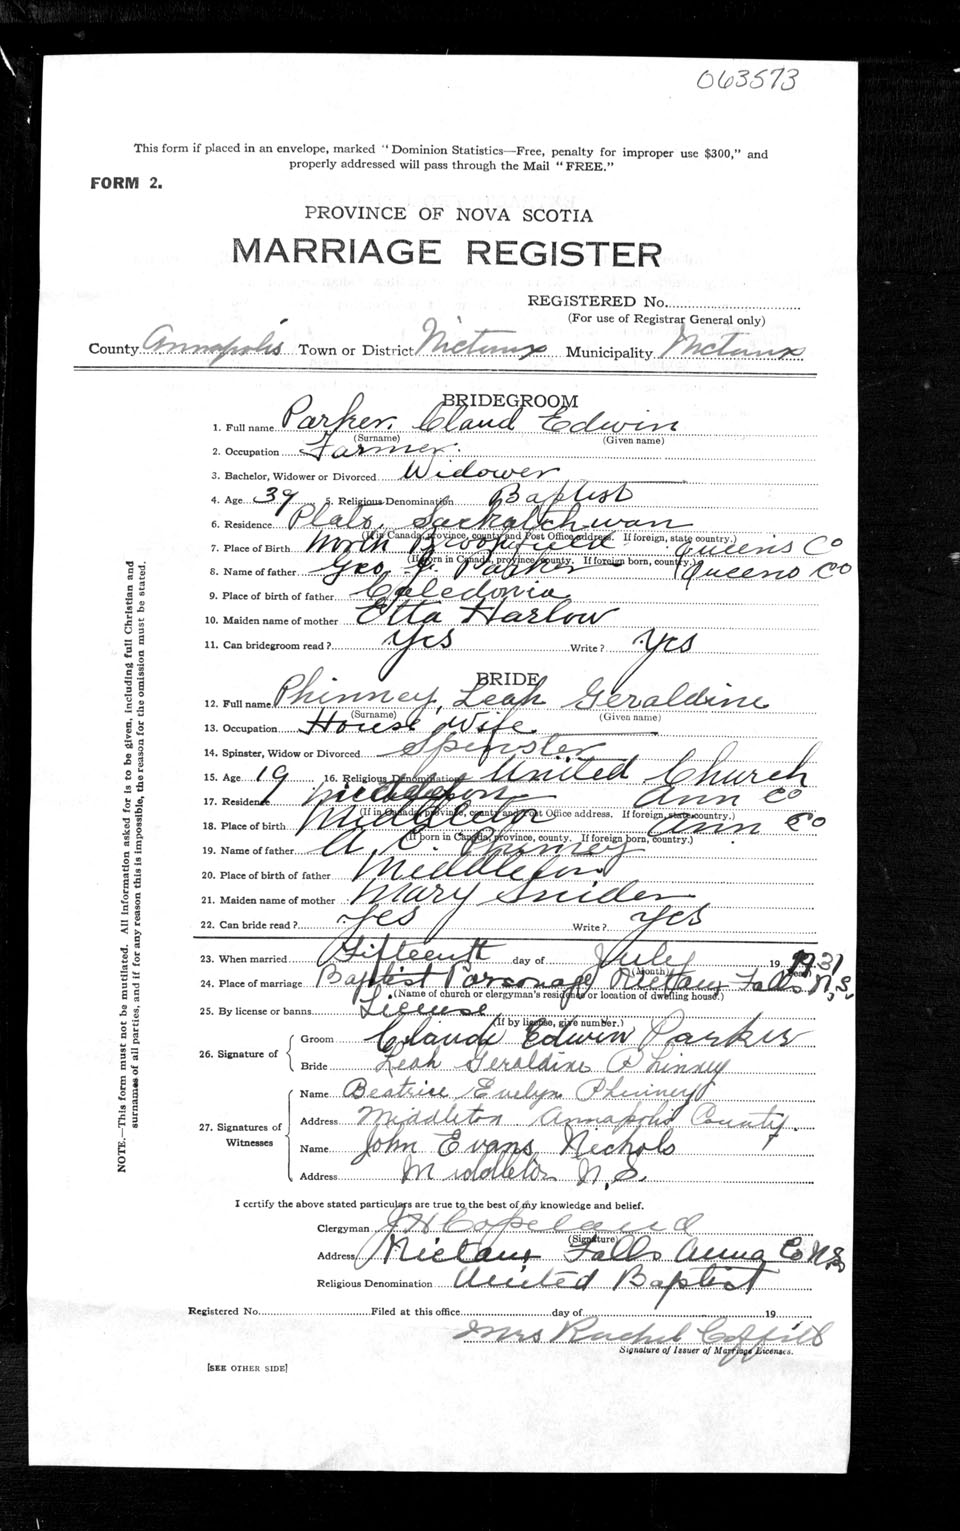 063573
This form if placed in an envelope, marked "Dominion Statistics—Free, penalty for improper use $300," and
properly addressed will pass through the Mail "FREE."
FORM 2.
PROVINCE OF NOVA SCOTIA
MARRIAGE REGISTER
REGISTERED No.
(For use of Registrar General only)
County Annapolis Town or District Nictaux Municipality Nictaux
BRIDEGROOM
1. Full name Parker, Claud Edwin
(Surname) (Given name)
2. Occupation Farmer.
3. Bachelor, Widower or Divorced Widower
4. Age 39 5. Religious Denomination Baptist
6. Residence Plato, Saskatchewan
(If in Canada, province, county and Post Office address. If foreign, state country.)
7. Place of Birth North Brookfield Queens Co
(If born in Canada, province, county. If foreign born, country.)
8. Name of father Geo Parker Queens Co
9. Place of birth of father Caledonia
10. Maiden name of mother Etta Harlow
11. Can bridegroom read? Yes Write? Yes
BRIDE
12. Full name Phinney, Leah Geraldine
(Surname) (Given name)
13. Occupation House Wife
14. Spinster, Widow or Divorced Spinster
15. Age 19 16. Religious Denomination United Church
17. Residence Middleton Ann Co
(If in Canada, province, county and Post Office address. If foreign, state country.)
18. Place of birth Middleton Ann Co
(If born in Canada, province, county. If foreign born, country.)
19. Name of father A. C. Phinney
20. Place of birth of father Middleton
21. Maiden name of mother Mary Snider
22. Can bride read? Yes Write? Yes
23. When married Fifteenth day of July 1931
(Month)
24. Place of marriage Baptist Parsonage Nictaux Falls N.S.
(Name of church or clergyman's residence or location of dwelling house.)
25. By license or banns License
(If by license, give number.)
26. Signature of
Groom Claude Edwin Parker
Bride Leah Geraldine Phinney
27. Signatures of Witnesses
Name Beatrice Evelyn Phinney
Address Middleton Annapolis County.
Name John Evans Nichols
Address Middleton N.S.
I certify the above stated particulars are true to the best of my knowledge and belief.
Clergyman J H Copeland
(Signature)
Address Nictaux Falls Anna Co N.S.
Religious Denomination United Baptist
Registered No. Filed at this office day of 19
Mrs Rachel
Signature of Issuer of Marriage Licenses.
[SEE OTHER SIDE]
NOTE.—This form must not be mutilated. All information asked for is to be given, including full Christian and
surnames of all parties, and if for any reason this is impossible, the reason for the omission must be stated.